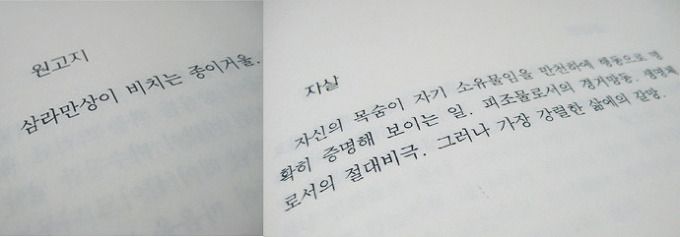 원고지
삼라만상이 비치는 종이거울.
자살
자신의 목숨이 자기 소유물임을 만천하에 행동으로 명
확히 증명해 보이는 일. 피조물로서의 경거망동. 생명체
로서의 절대비극. 그러나 가장 강렬한 삶에의 갈망.